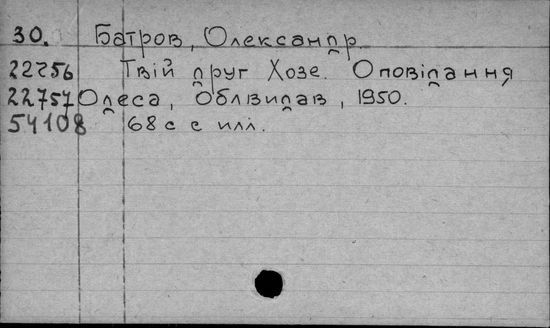 30. Батров, Олександр.
22256 Твій друг Хозе. Оповідання
22757 Одеса, Облвидав, 1950.
54108 68 с с илл.